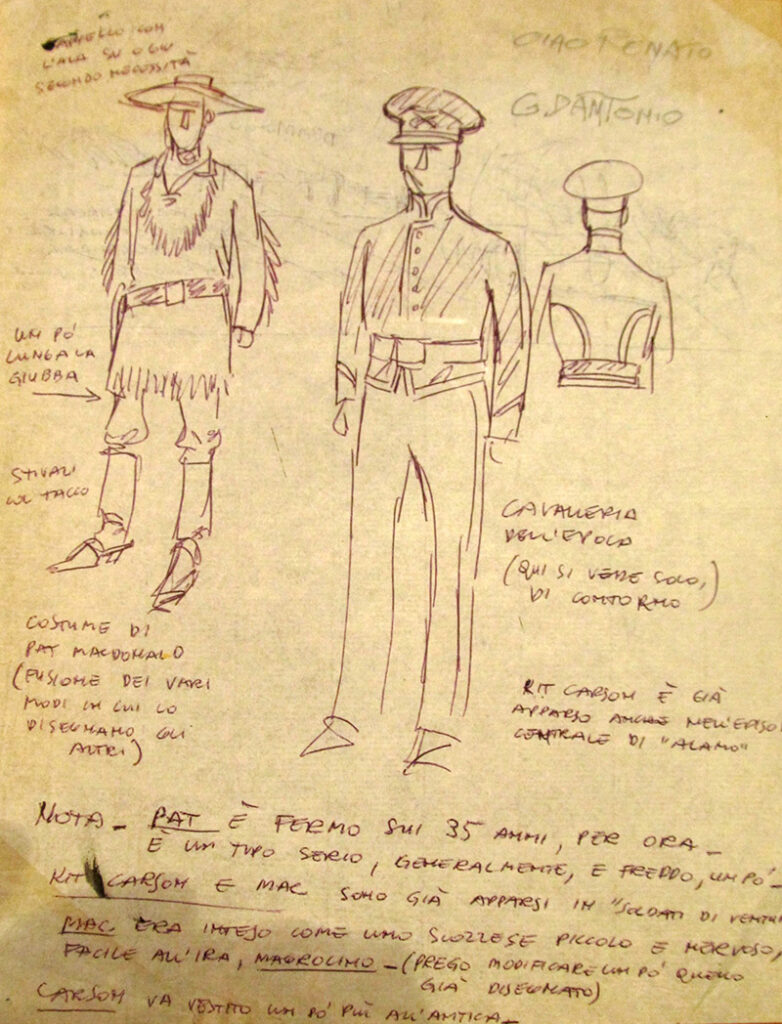 CAPPELLO CON
L'ALA SU O GIÙ
SECONDO NECESSITÀ
CIAO RENATO
G. D'ANTONIO
UN PÒ
LUNGA LA
GIUBBA
STIVALI
COL TACCO
CAVALLERIA
DELL'EPOCA
(QUI SI VEDE SOLO,
DI CONTORNO)
COSTUME DI
PAT MACDONALD
(FUSIONE DEI VARI
MODI IN CUI LO
DISEGNANO GLI
ALTRI)
KIT CARSON È GIÀ
APPARSO ANCHE NELL'EPISO
CENTRALE DI "ALAMO"
NOTA - PAT È FERMO SUI 35 ANNI, PER ORA -
È UN TIPO SERIO, GENERALMENTE, E FREDDO, UN PÒ -
KIT CARSON E MAC SONO GIÀ APPARSI IN "SOLDATI DI VENTU
MAC ERA INTESO COME UNO SCOZZESE PICCOLO E NERVOSO,
FACILE ALL'IRA, MAGROLINO - (PREGO MODIFICARE UN PÒ QUELLO
GIÀ DISEGNATO)
CARSON VA VESTITO UN PÒ PIÙ ALL'ANTICA -